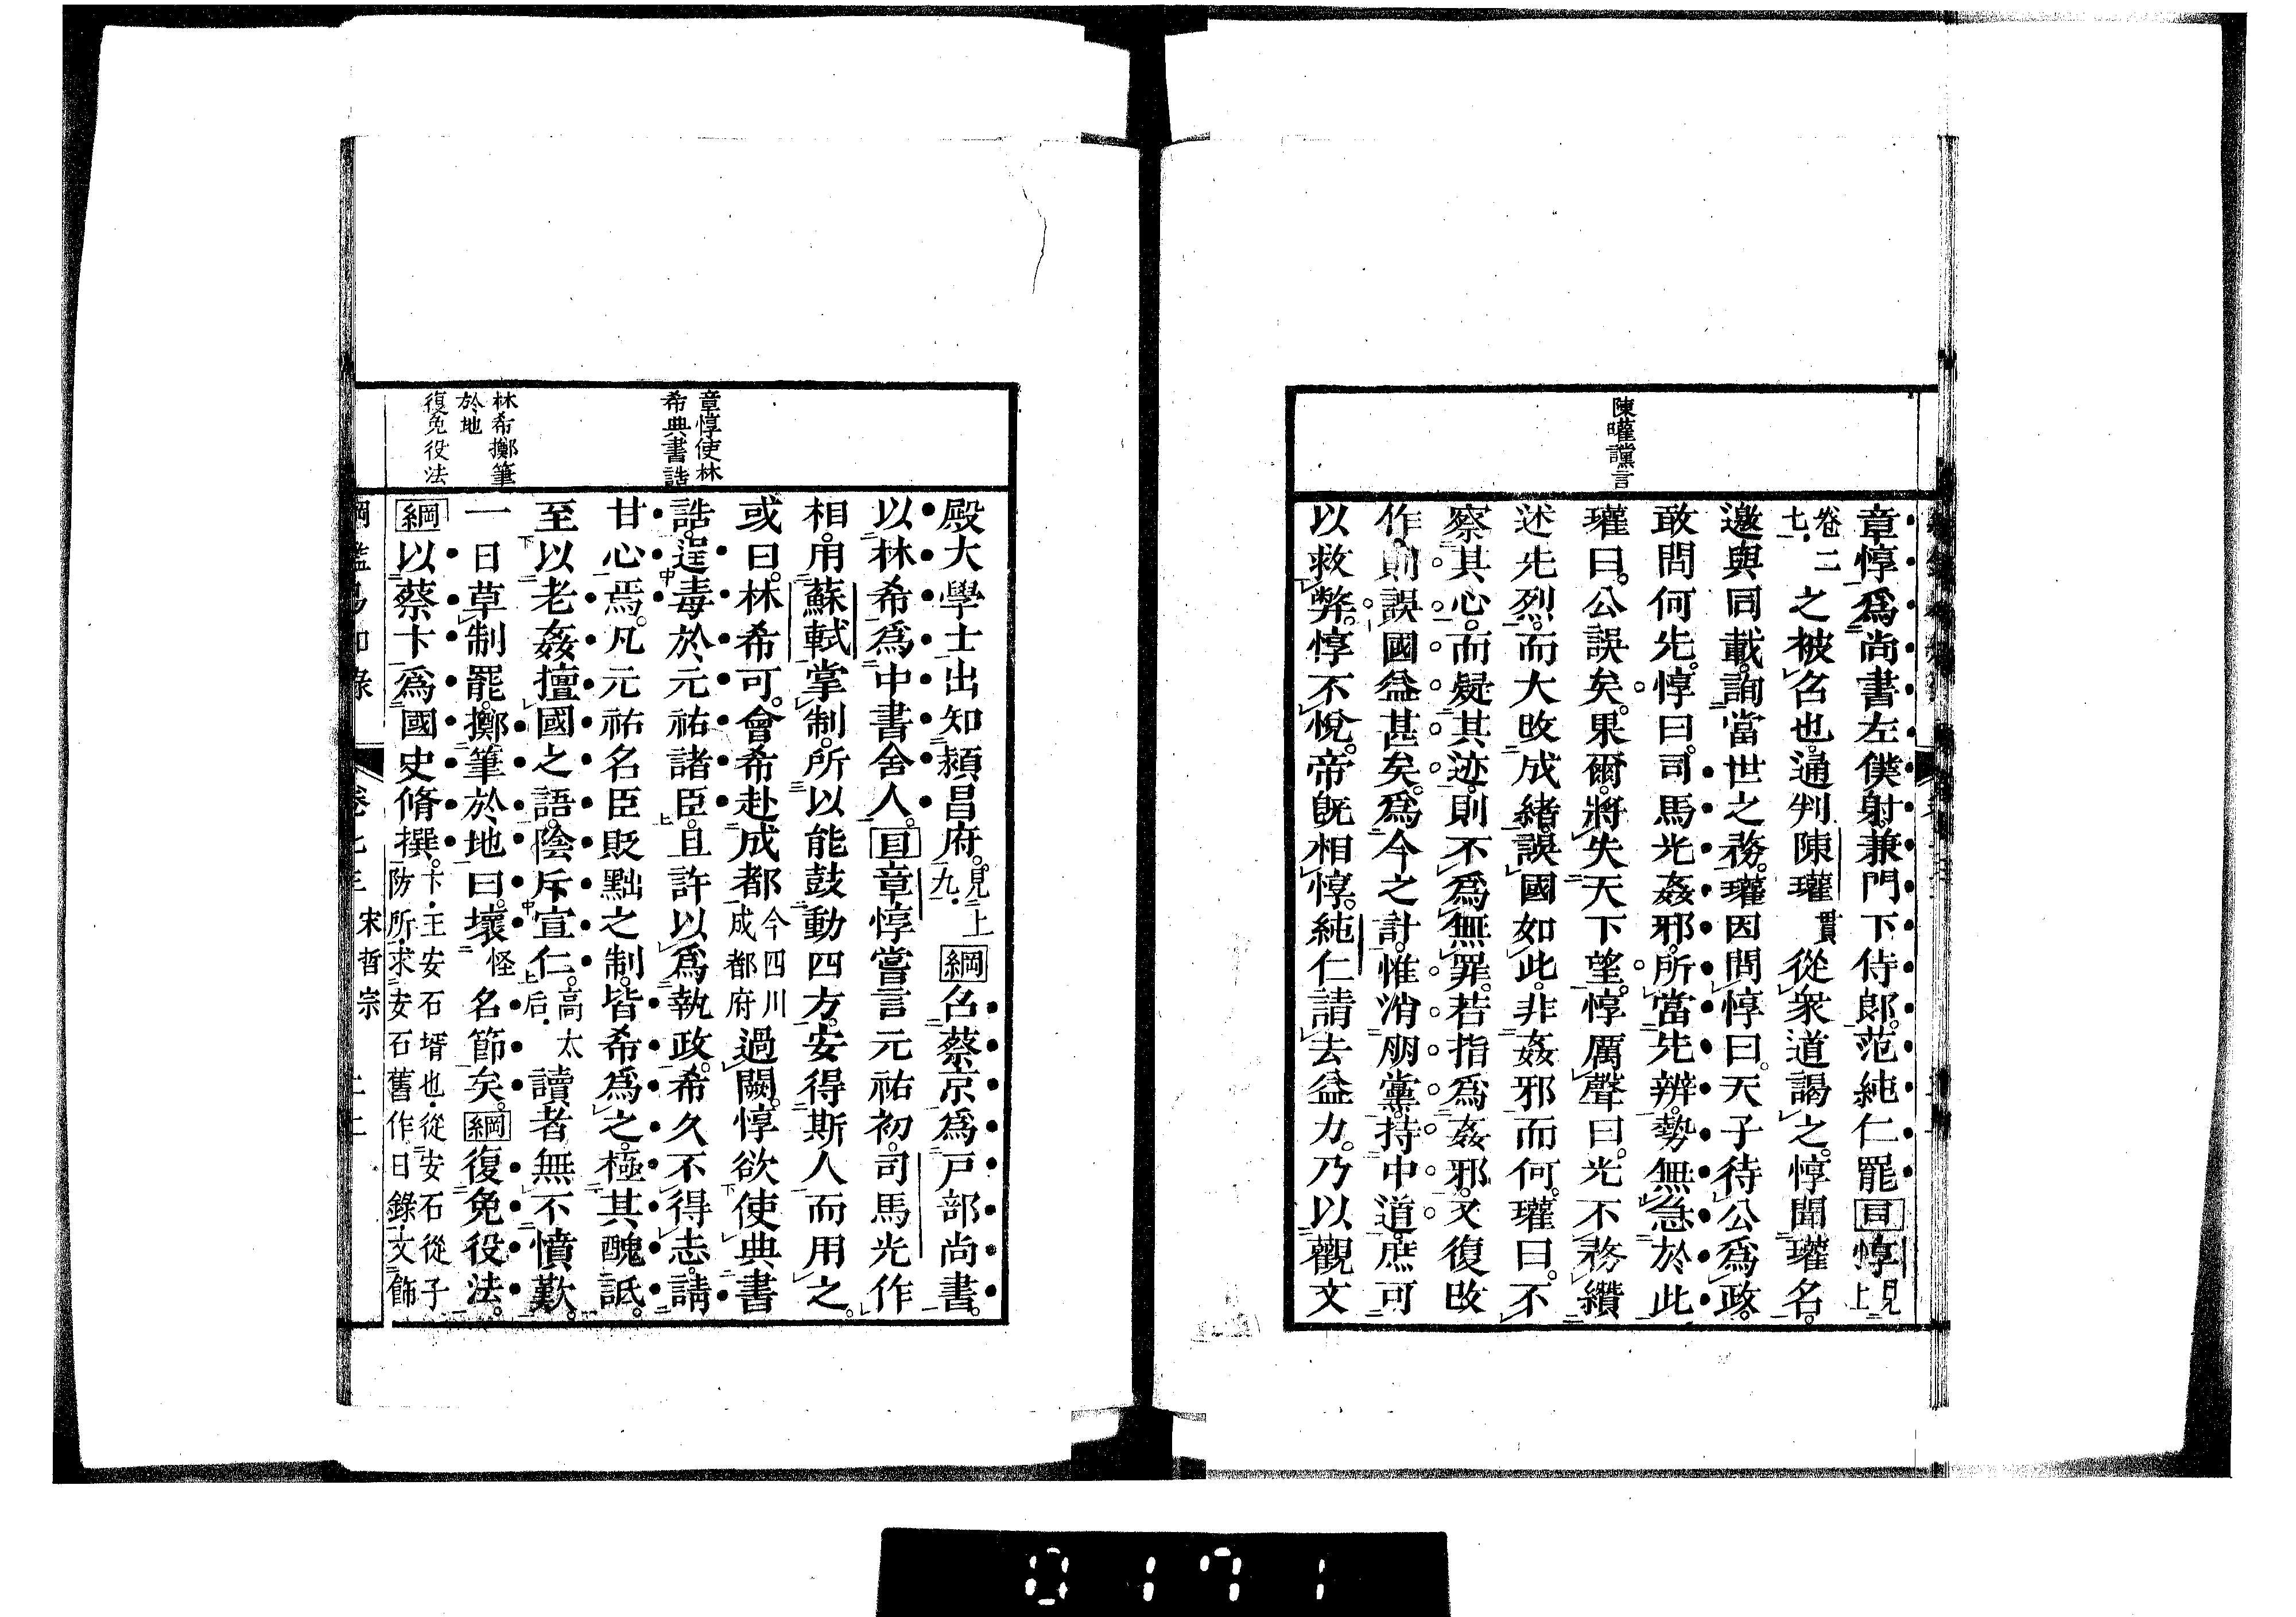 陳瓘讜言
章惇爲尚書左僕射。兼門下侍郎。范純仁罷目惇見上
卷二七。之被召也。通判陳瓘貫從衆道謁之。惇聞瓘名。
邀與同載。詢當世之務。瓘因問惇曰。天子待公爲政。
敢問何先。惇曰。司馬光姦邪。所當先辨。勢無急於此
瓘曰。公誤矣。果爾。將失天下望。惇厲聲曰。光不務纘
述先烈。而大改成緒。誤國如此。非姦邪而何。瓘曰。不
察其心。而疑其迹。則不爲無罪。若指爲姦邪。又復改
作。則誤國益甚矣。爲今之計。惟消朋黨。持中道。庶可
以救弊。惇不悅。帝旣相惇。純仁請去益力。乃以觀文
章惇使林
希典書誥
林希擲筆
於地
復免役法
殿大學士出知潁昌府。見上九。綱召蔡京爲戸部尚書。
以林希爲中書舍人。目章惇嘗言元祐初。司馬光作
相。用蘇軾掌制。所以能鼓動四方。安得斯人而用之。
或曰。林希可。會希赴成都今四川成都府過闕。惇欲使典書
誥。逞毒於元祐諸臣。且許以爲執政。希久不得志。請
甘心焉。凡元祐名臣貶黜之制。皆希爲之。極其醜詆。
至以老姦擅國之語。陰斥宣仁。高太后。讀者無不憤歎。
一日草制罷。擲筆於地曰。壞怪名節矣。綱復免役法。
綱以蔡卞爲國史脩撰。卞。王安石壻也。從安石從子防所。求安石舊作日錄。文飾
卷七主 宋哲宗
0171